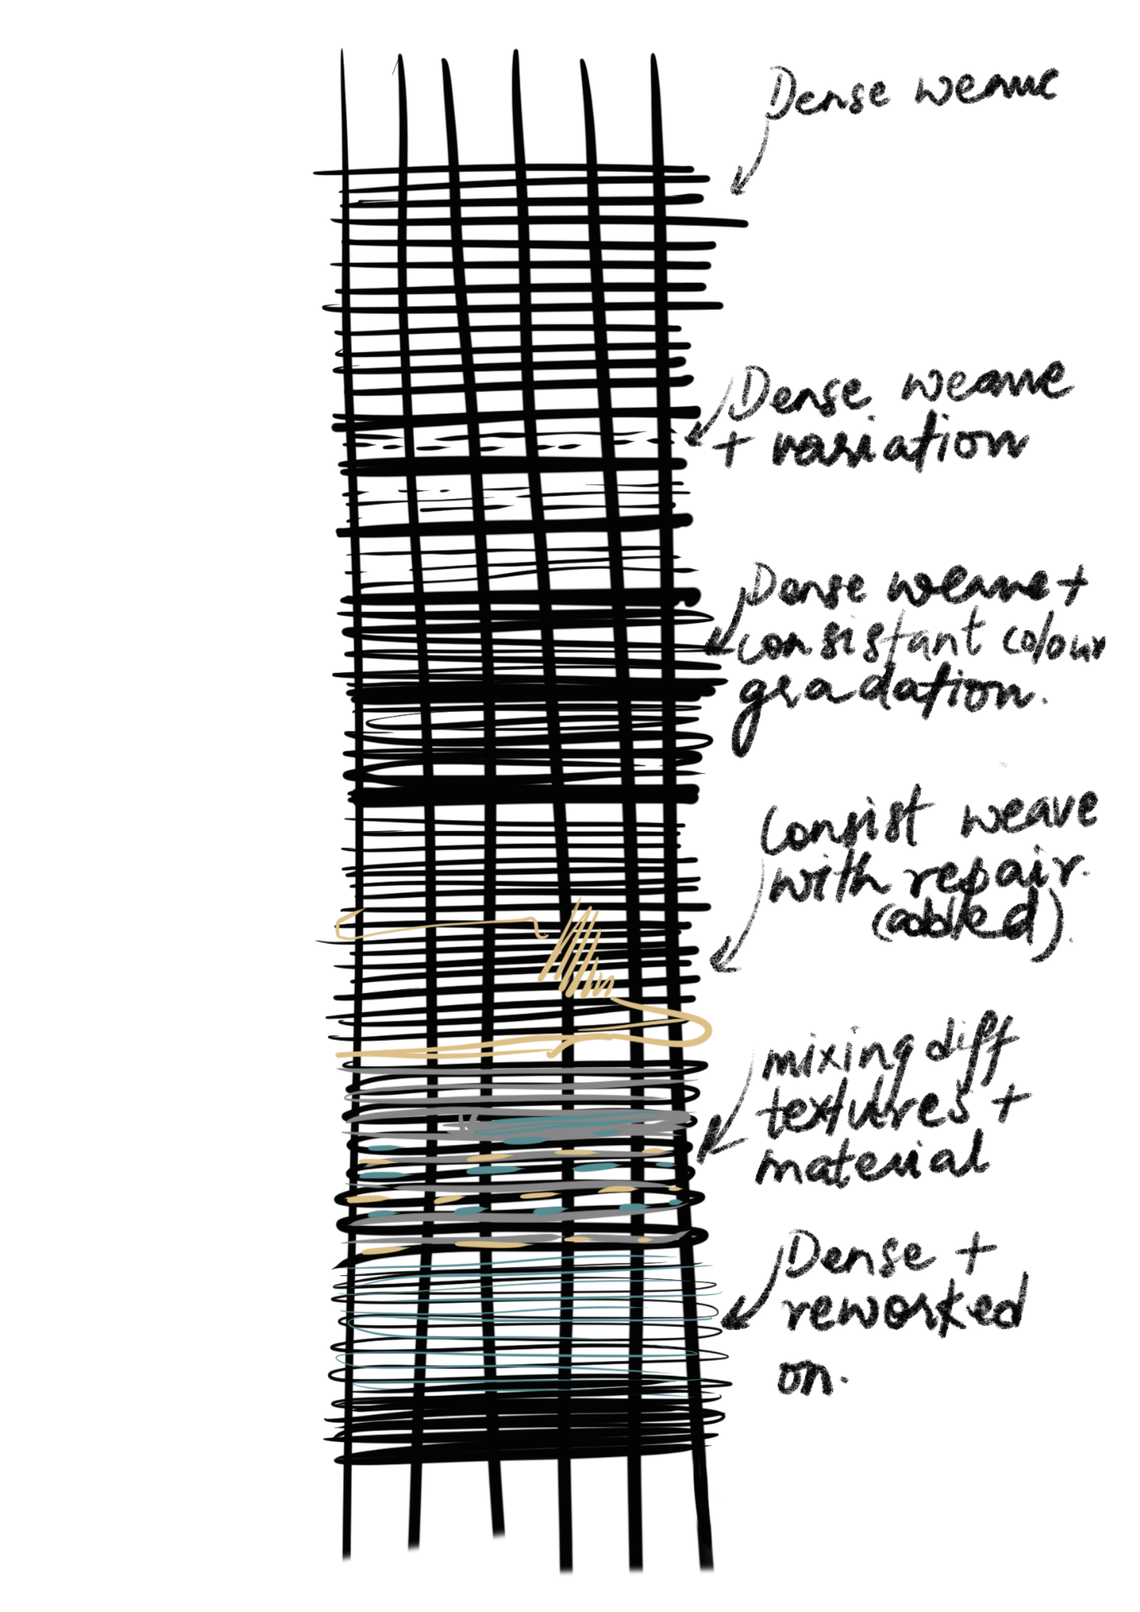 Dense weave
Dense weave
+ variation
Dense weave +
consistant colour
gradation.
Consist weave
with repair.
(added).
mixing diff
textures +
material
Dense +
reworked
on.